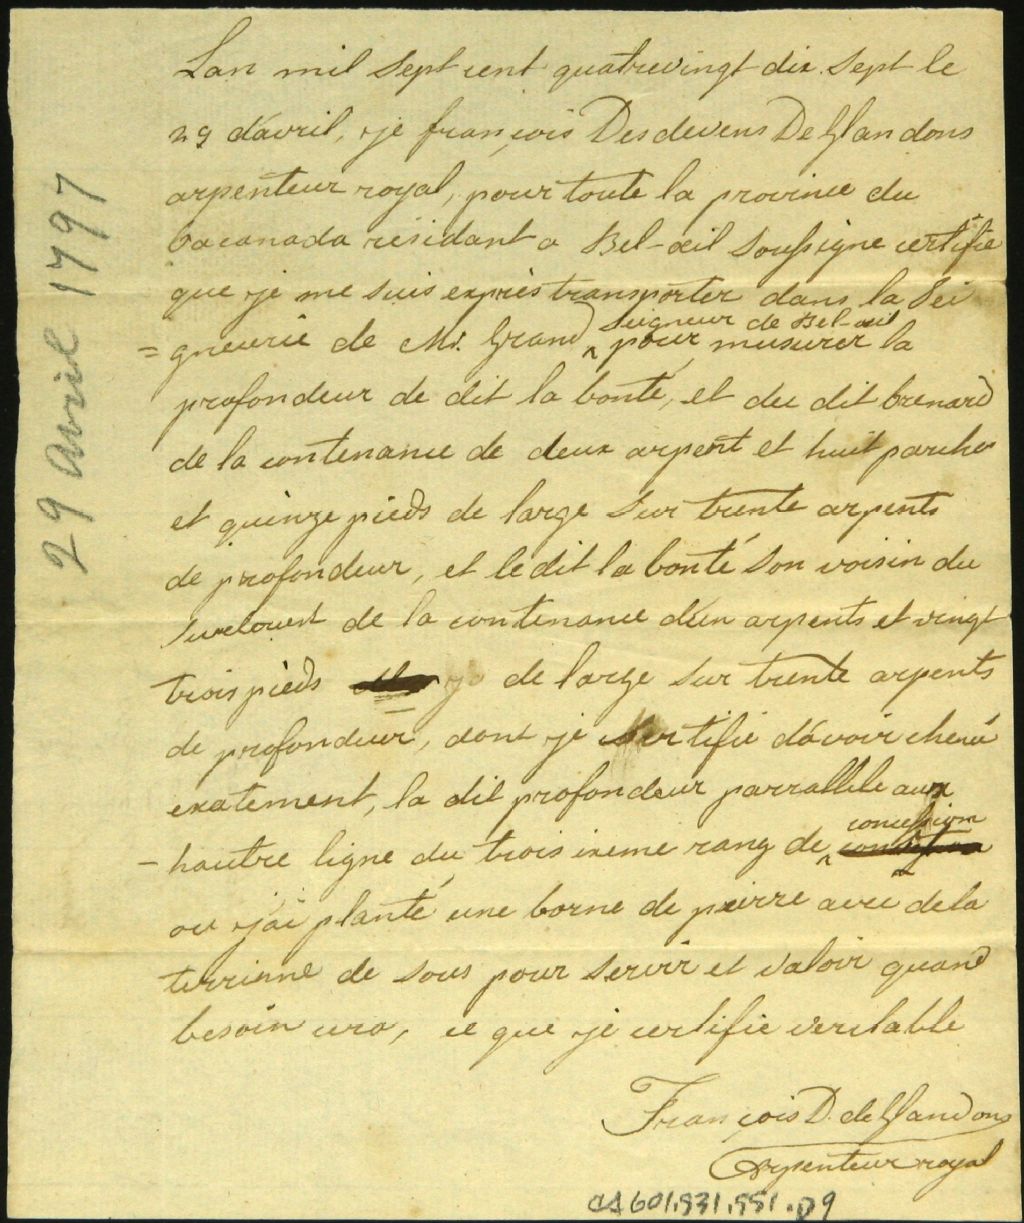 Lan mil sept cent quatrevingt dix sept le
29 d'avril, je françois Desdevens De Glandons
arpenteur royal, pour toute la province du
bacanada résidant a Bel-œil soussigne certifie
que je me suis exprès transporter dans la Sei
= gneurie de Mr. Grand ^ seigneur de Bel-œil pour musurer la
profondeur de dit la bonté, et du dit brenard
de la contenance de deux arpent et huit parches
et quinze pieds de large sur trente arpents
de profondeur, et ledit la bonté son voisin du
surelouest de la contenance d'un arpents et vingt
trois pieds de large sur trente arpents
de profondeur, dont je sertifie d'avoir chené
exatement, la dit profondeur parrallele aux
- hautre ligne du trois ixeme rang de ^ concession
ou j'ai planté une borne de pierre avec de la
terrinne de sous pour servir et valoir quand
besoin cera, ce que je certifie veritable
François D. de Glandons
Arpenteur royal
29 avril 1797
CA601,S31,SS1,D9